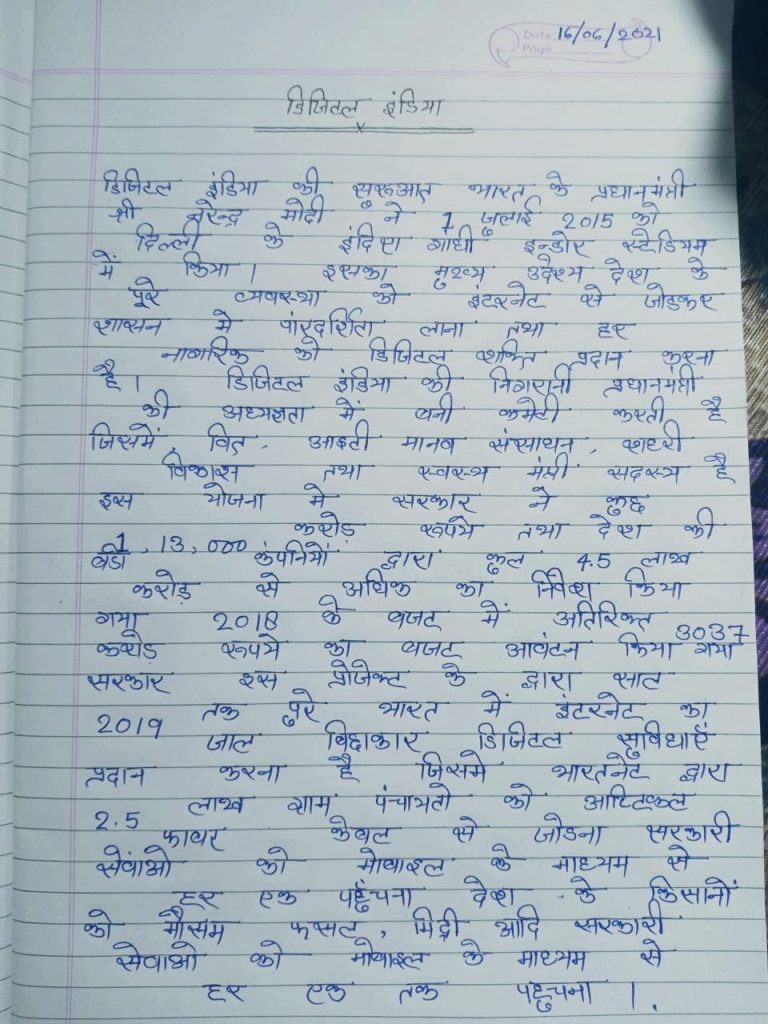 Date 16/06/2021
Page
डिजिटल इंडिया
डिजिटल इंडिया की सुरूआत भारत के प्रधानमंत्री
श्री नरेन्द्र मोदी ने 1 जुलाई 2015 को
दिल्ली के इंदिरा गांधी इन्डोर स्टेडियम
में किया। इसका मुख्य उदेश्य देश के
पूरे व्यवस्था को इंटरनेट से जोडकर
शासन मे पांरदर्सिता लाना तथा हर
नागरिक को डिजिटल शक्ति प्रदान करना
है। डिजिटल इंडिया की निगरानी प्रधानमंत्री
की अध्यक्षता में बनी कमेटी करती है
जिसमें, वित, आइटी मानव संसाधन, शहरी
विकास तथा स्वस्थ मंत्री सदस्य है
इस योजना मे सरकार ने कुछ
1,13,000 करोड़ रूपये तथा देश की
बडी कंपनियों द्वारा कुल 4.5 लाख
करोड़ से अधिक का निवेश किया
गया 2018 के बजट में अतिरिक्त 3037
करोड़ रूपये का बजट आवंटन किया गया
सरकार इस प्रोजेक्ट के द्वारा साल
2019 तक पुरे भारत में इंटरनेट का
जाल विछाकार डिजिटल सुविधाएं
प्रदान करना है जिसमे भारतनेट द्वारा
2.5 लाख ग्राम पंचायतो को आप्टिकल
फावर केवल से जोडना सरकारी
सेवाओ को मोवाइल के माध्यम से
हर एक पहुँचना देश के किसानों
को मौसम फसल, मिट्टी आदि सरकारी
सेवाओ को मोवाइल के माध्यम से
हर एक तक पहुचना।